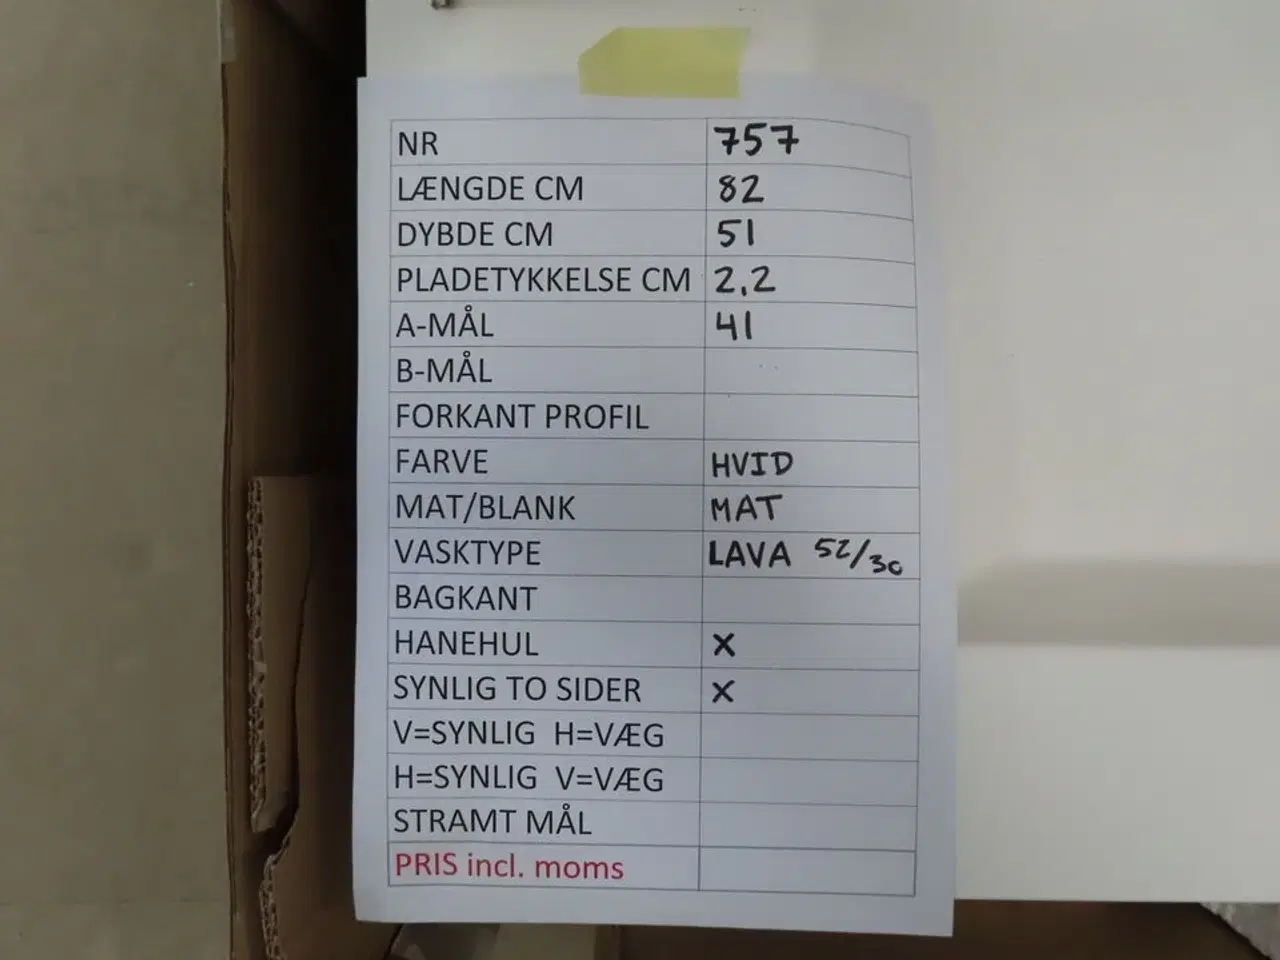 NR 757
LÆNGDE CM 82
DYBDE CM 51
PLADETYKKELSE CM 2,2
A-MÅL 41
B-MÅL
FORKANT PROFIL
FARVE HVID
MAT/BLANK MAT
VASKTYPE LAVA 52/30
BAGKANT
HANEHUL X
SYNLIG TO SIDER X
V=SYNLIG H=VÆG
H=SYNLIG V=VÆG
STRAMT MÅL
PRIS incl. moms